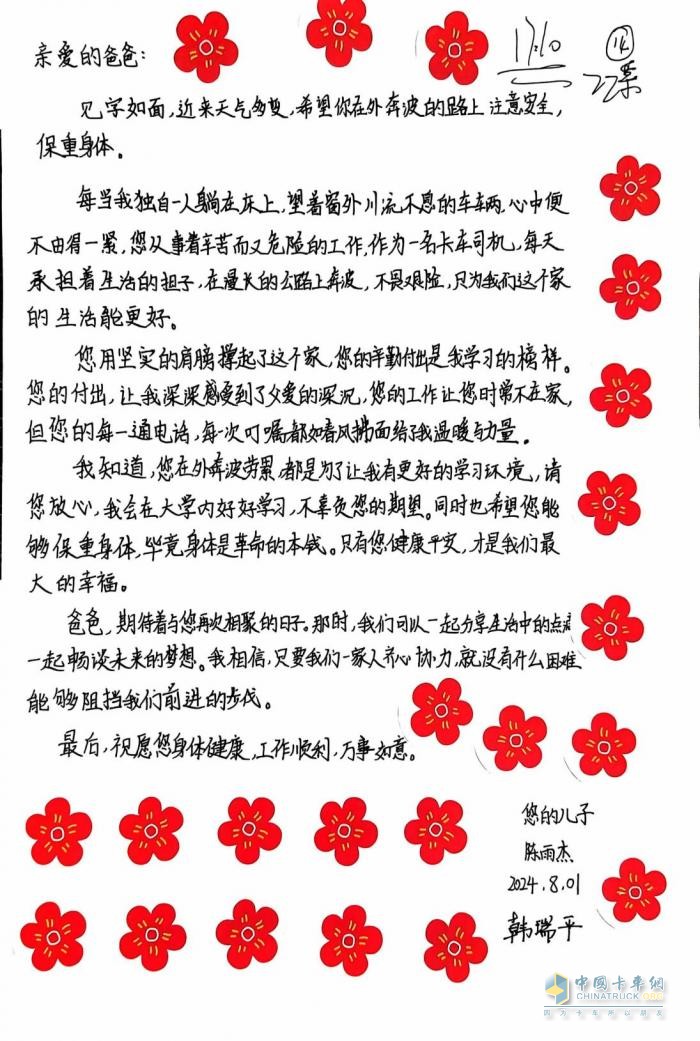 亲爱的爸爸：
17:10
见字如面，近来天气多变，希望你在外奔波的路上注意安全，
保重身体。
每当我独自一人躺在床上，望着窗外川流不息的车辆，心中便
不由得一紧，您从事着辛苦而又危险的工作，作为一名卡车司机，每天
承担着生活的担子，在漫长的公路上奔波，不畏艰险，只为我们这个家
的生活能更好。
您用坚实的肩膀撑起了这个家，您的辛勤付出是我学习的榜样。
您的付出，让我深深感受到了父爱的深沉，您的工作让您时常不在家，
但您的每一通电话，每一次叮嘱都如春风拂面给了我温暖与力量。
我知道，您在外奔波劳累，都是为了让我有更好的学习环境，请
您放心，我会在大学内好好学习，不辜负您的期望。同时也希望您能
够保重身体，毕竟身体是革命的本钱。只有您健康平安，才是我们最
大的幸福。
爸爸，期待着与您再次相聚的日子。那时，我们可以一起分享生活中的点
一起畅谈未来的梦想。我相信，只要我们一家人齐心协力，就没有什么困难
能够阻挡我们前进的步伐。
最后，祝愿您身体健康，工作顺利，万事如意。
您的儿子
陈雨杰
2024.8.01
韩瑞平
中国卡车网
CHINATRUCK.ORG
因为卡车所以朋友